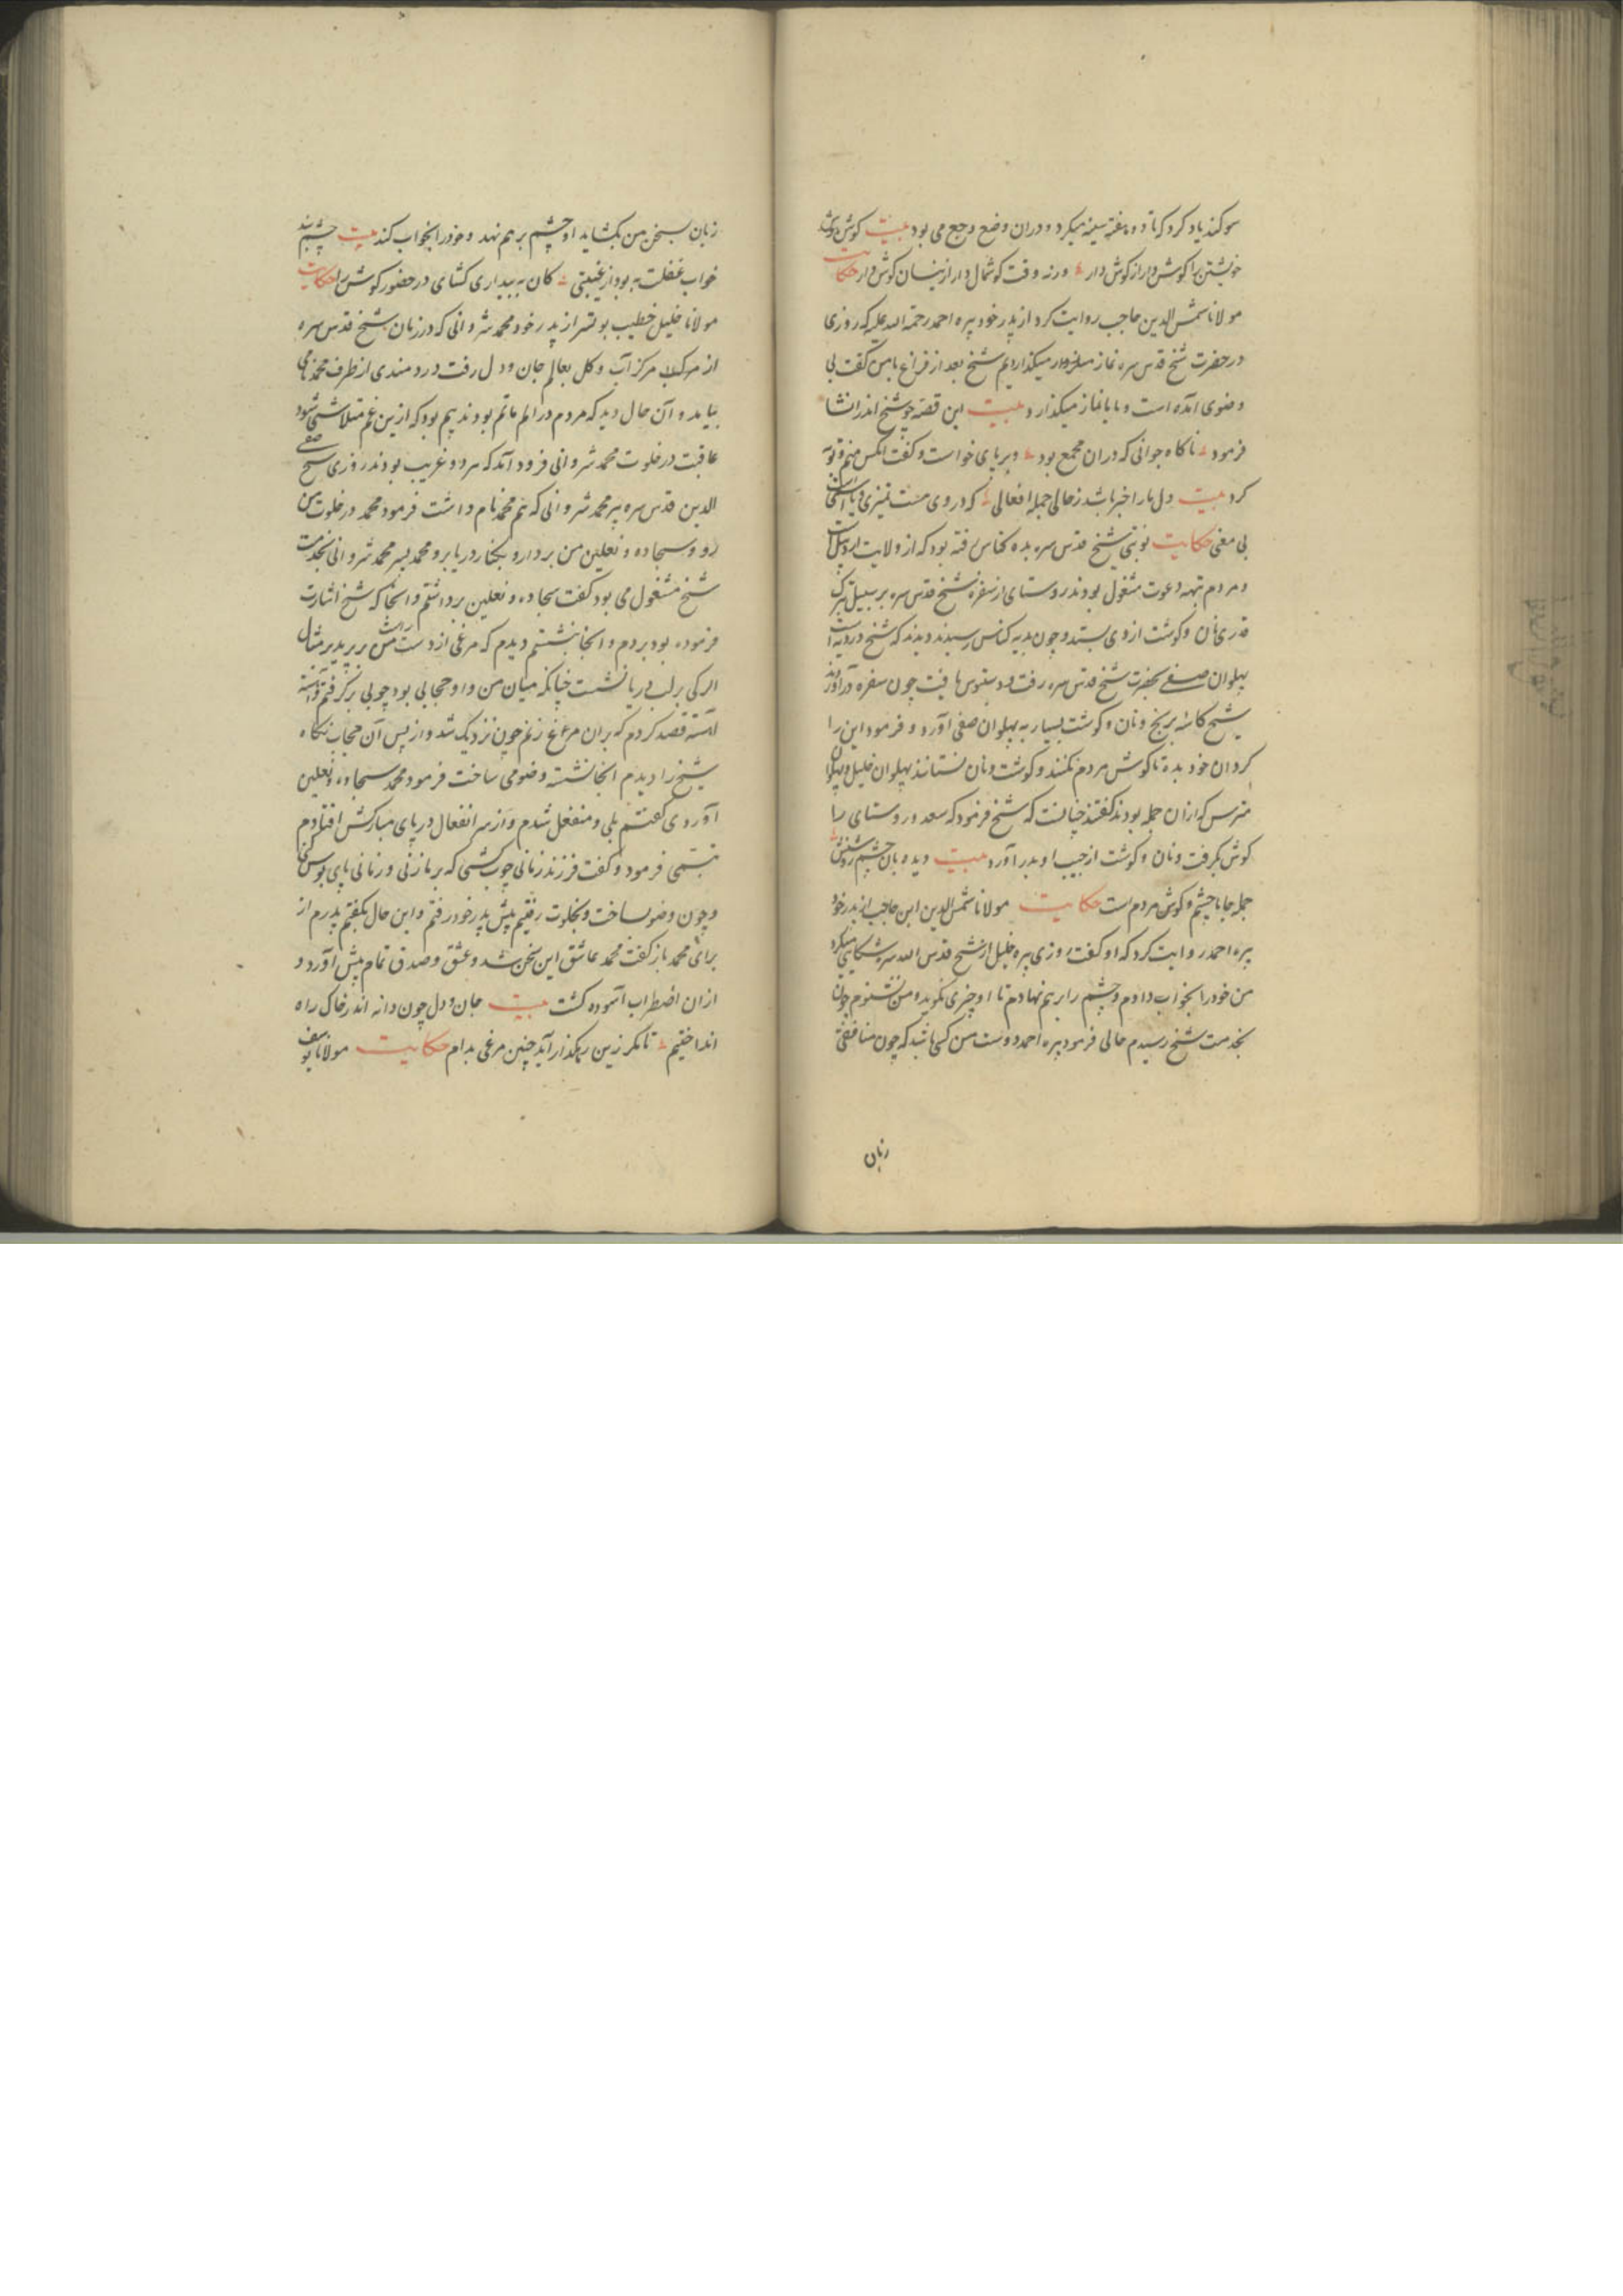 سوکند یاد کرد که تا دو هفته سینه میکرد و دران وضع وجع می بود بیت کوش
خویشتن را کوش دار از کوش دار ورنه وقت کوشمال دار ازینسان کوش دار حکایت
مولانا شمس الدین حاجب روایت کرد از پدر خود پیره احمد رحمة الله علیه که روزی
در حضرت شیخ قدس سره نماز میکذاردیم شیخ بعد از فراغ بامن کفت بی
وضوی آمده است و با ما نماز میکذارد بیت این قصه چو شیخ اندر انشا
فرمود ناکاه جوانی که دران مجمع بود بر پای خواست و کفت انکس منم و توبه
کرد بیت دل ما را خبر باشد ز حالی جمله افعالی که در وی هست تمیزی
بی معنی حکایت نوبتی شیخ قدس سره بده کناس رفته بود که از ولایت اردبیل است
و مردم تهیه دعوت مشغول بودند روستای از سفره شیخ قدس سره بر سبیل تبرک
قدری نان و کوشت از وی بستد و چون بدیه کناس رسیدند دیدند که شیخ در دیه است
پهلوان صفی بحضرت شیخ قدس سره رفت و دستبوس یافت چون سفره در آوردند
شیخ کاسه برنج و نان و کوشت بسیار به پهلوان صفی آورد و فرمود این را
کردان خود بده تا کوش مردم نکنند و کوشت و نان نستانند پهلوان خلیل و پهلوان
مترس که ازان جمله بودند کفتند چنانست که شیخ فرمود که سعد و روستای را
کوش بکرفت و نان و کوشت از جیب او بدر آورد بیت دیده بان چشم روشنش
جمله جاها چشم و کوش مردم است حکایت مولانا شمس الدین ابن حاجب از پدر خود
پیره احمد روایت کرد که او کفت روزی پیره خلیل از شیخ قدس الله سره شکایتی میکرد
من خود را بخواب دادم و چشم را بر هم نهادم تا او چیزی نکوید و من نشنوم چون
بخدمت شیخ رسیدم حالی فرمود پیره احمد دوست من کسی باشد که چون منافقی
زبان
زبان بسخن من بکشاید او چشم برهم نهد و خود را بخواب کند بیت چشم بند
خواب غفلت به بود از غیبتی کان به بیداری کشای در حضور کوش را حکایت
مولانا خلیل خطیب بوتسر از پدر خود محمد شروانی که در زمان شیخ قدس سره
از مرکب مرکز آب و کل بعالم جان و دل رفت دردمندی از طرف محمد نامی
بیامد و آن حال دید که مردم در الم ماتم بودند بیم بود که ازین غم متلاشی شود
عاقبت در خلوت محمد شروانی فرود آمد که مرد و غریب بودند روزی شیخ صفی
الدین قدس سره پیر محمد شروانی که هم محمد نام داشت فرمود محمد در خلوت من
رو و سجاده و نعلین من بردار و بکنار دریا برو محمد پسر محمد شروانی بخدمت
شیخ مشغول می بود کفت سجاده و نعلین برداشتم و آنجا که شیخ اشارت
فرموده بود بردم و انجا بنشستم دیدم که مرغی از دست راست من بر پرید بر مثال
الرکی بر لب دریا نشست چنانکه میان من و او حجابی بود چوبی برکرفتم و آهسته
آهسته قصد کردم که بران مرغ زنم چون نزدیک شد و از پس آن حجاب نکاه
شیخ را دیدم انجا نشسته وضو می ساخت فرمود محمد سجاده و نعلین
آوردی کفتم بلی و منفعل شدم و از سر انفعال در پای مبارکش افتادم
تبسمی فرمود و کفت فرزند زمانی چوب کشی که بر ما زنی و زمانی پای بوس کنی
و چون وضو ساخت و بخلوت رفتیم پیش پدر خود رفتم و این حال بکفتم پدرم از
برای محمد باز کفت محمد عاشق این سخن شد و عشق و صدق تمام پیش آورد و
ازان اضطراب آسوده کشت بیت جان و دل چون دانه اندر خاک راه
انداختیم تا مکر زین رهکذار آید چنین مرغی بدام حکایت مولانا یوسف